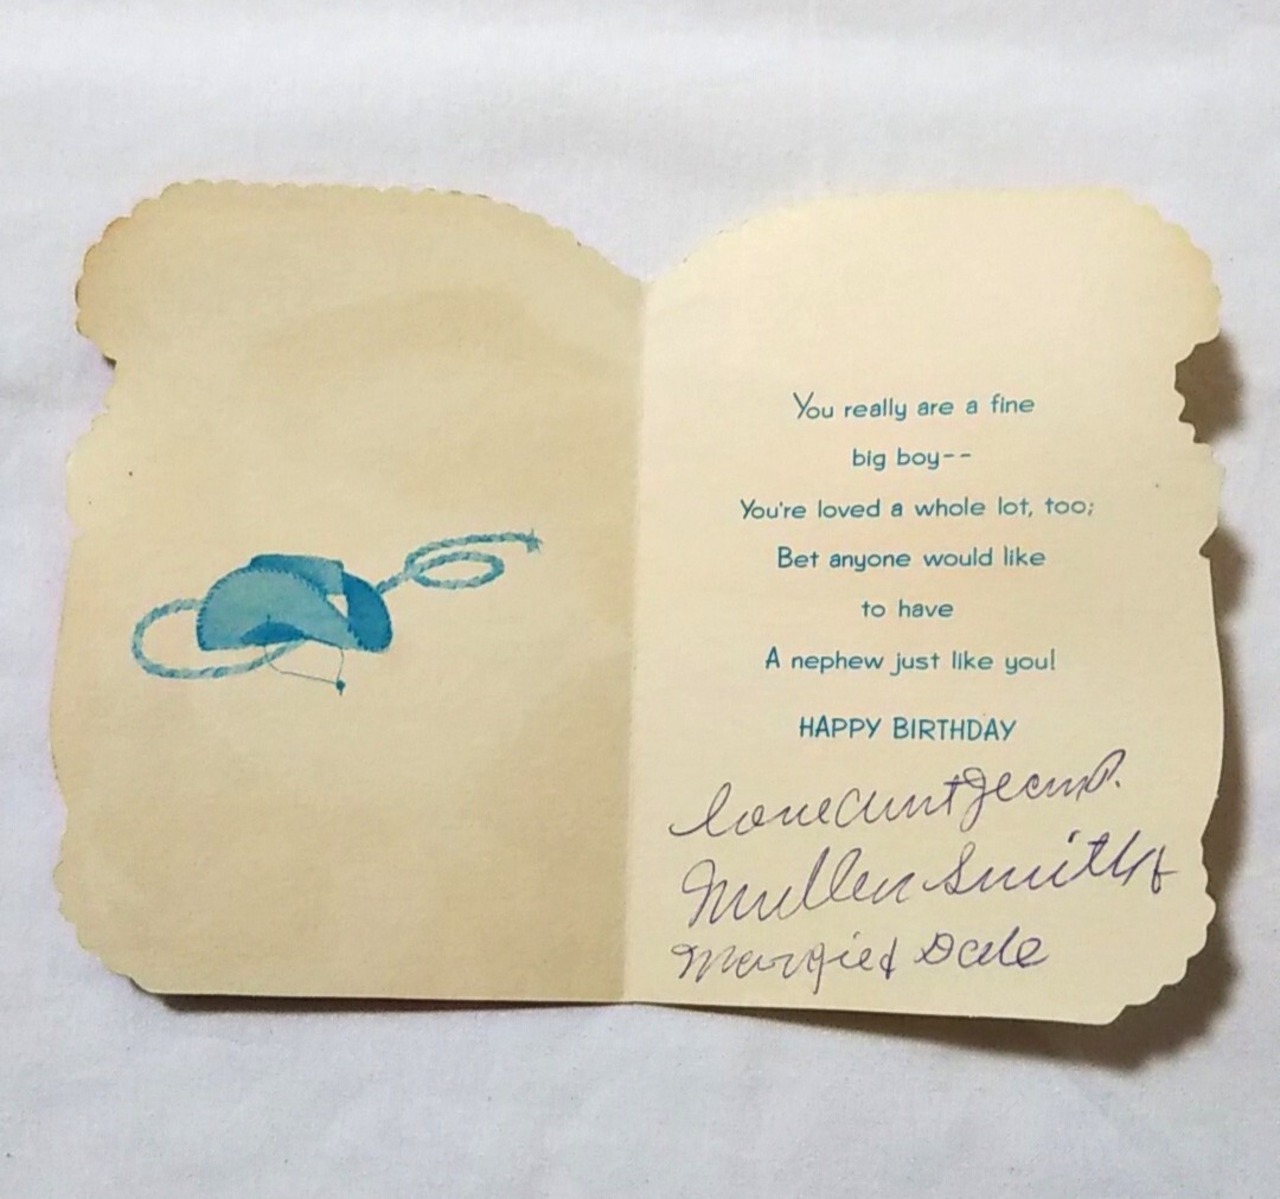 You really are a fine
big boy--
You're loved a whole lot, too;
Bet anyone would like
to have
A nephew just like you!
HAPPY BIRTHDAY
Love Aunt Jean
Mullen Smith &
Margie & Dale